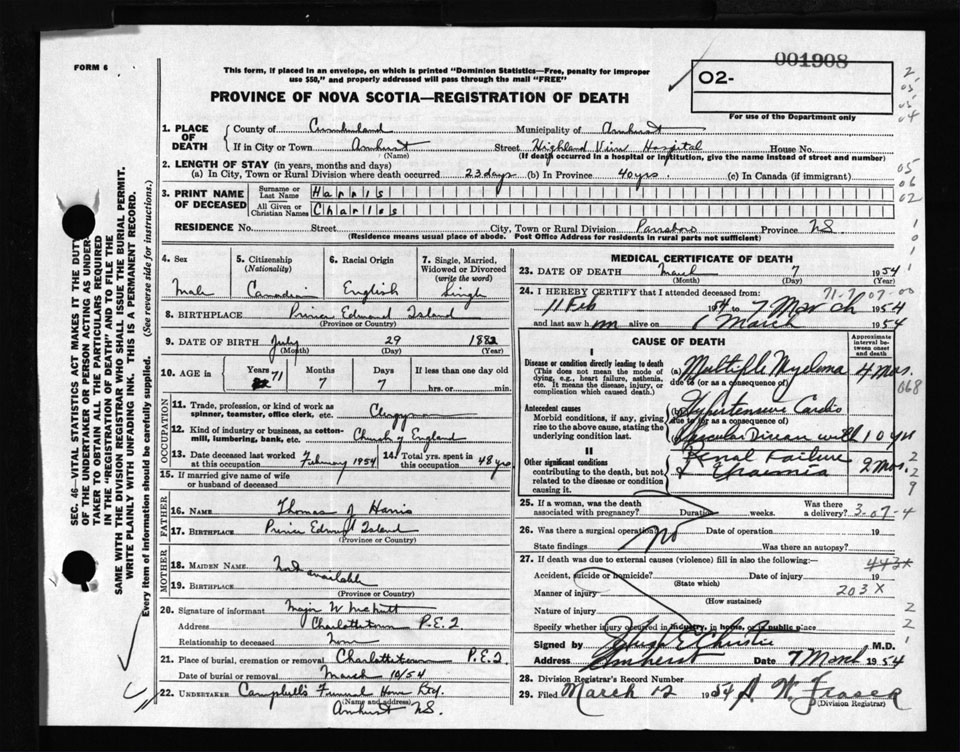 FORM 6
This form, if placed in an envelope, on which is printed "Dominion Statistics—Free, penalty for improper
use $50," and properly addressed will pass through the mail "FREE"
001908
O2-
For use of the Department only
PROVINCE OF NOVA SCOTIA—REGISTRATION OF DEATH
1. PLACE OF DEATH County of Cumberland Municipality of Amherst
If in City or Town Amherst Street Highland View Hospital House No.
(Name) (If death occurred in a hospital or institution, give the name instead of street and number)
2. LENGTH OF STAY (in years, months and days)
(a) In City, Town or Rural Division where death occurred 23 days (b) In Province 40 yrs. (c) In Canada (if immigrant)
3. PRINT NAME OF DECEASED Surname or Last Name Harris
All Given or Christian Names Charles
RESIDENCE No. Street City, Town or Rural Division Parrsboro Province NS.
(Residence means usual place of abode. Post Office Address for residents in rural parts not sufficient)
4. Sex 5. Citizenship (Nationality) 6. Racial Origin 7. Single, Married, Widowed or Divorced (write the word)
Male Canadian English Single
8. BIRTHPLACE Prince Edward Island
(Province or Country)
9. DATE OF BIRTH July 29 1882
(Month) (Day) (Year)
10. AGE in Years 71 Months 7 Days 7 If less than one day old hrs. or min.
OCCUPATION
11. Trade, profession, or kind of work as spinner, teamster, office clerk, etc. Clergyman
12. Kind of industry or business, as cotton-mill, lumbering, bank, etc. Church of England
13. Date deceased last worked at this occupation February 1954 14. Total yrs. spent in this occupation 48 yrs.
15. If married give name of wife or husband of deceased
FATHER
16. NAME Thomas J Harris
17. BIRTHPLACE Prince Edward Island
(Province or Country)
MOTHER
18. MAIDEN NAME Not available
19. BIRTHPLACE
(Province or Country)
20. Signature of informant Major W McNutt
Address Charlottetown P.E.I.
Relationship to deceased None
21. Place of burial, cremation or removal Charlottetown P.E.I.
Date of burial or removal March 10/54
22. UNDERTAKER Campbell's Funeral Home
(Name and address)
Amherst NS.
MEDICAL CERTIFICATE OF DEATH
23. DATE OF DEATH March 7 1954
(Month) (Day)
24. I HEREBY CERTIFY that I attended deceased from:
11 Feb 1954 to 7 March 1954
and last saw him alive on 7 March 1954
CAUSE OF DEATH
Approximate interval between onset and death
I
Disease or condition directly leading to death
(This does not mean the mode of dying, e.g., heart failure, asthenia, etc. It means the disease, injury, or complication which caused death.)
(a) Multiple Myeloma 4 Mos.
due to (or as a consequence of)
Antecedent causes
Morbid conditions, if any, giving rise to the above cause, stating the underlying condition last.
(b) Hypertensive Cardio
due to (or as a consequence of)
Vascular Disease with 10 yrs
II
Other significant conditions
contributing to the death, but not related to the disease or condition causing it.
Renal Failure
& Uraemia 2 Mos.
25. If a woman, was the death associated with pregnancy? Duration weeks. Was there a delivery?
26. Was there a surgical operation? No Date of operation 19
State findings Was there an autopsy?
27. If death was due to external causes (violence) fill in also the following:—
Accident, suicide or homicide? Date of injury 19
(State which)
Manner of injury
(How sustained)
203 X
Nature of injury
Specify whether injury occurred in industry, in home, or in public place
Signed by Hugh E Christie M.D.
Address Amherst Date 7 March 1954
28. Division Registrar's Record Number
29. Filed March 12 1954 A. W. Fraser
(Division Registrar)
SEC. 46—VITAL STATISTICS ACT MAKES IT THE DUTY
OF THE UNDERTAKER OR PERSON ACTING AS UNDER-
TAKER TO OBTAIN ALL THE PARTICULARS REQUIRED
IN THE "REGISTRATION OF DEATH" AND TO FILE THE
SAME WITH THE DIVISION REGISTRAR WHO SHALL ISSUE THE BURIAL PERMIT.
WRITE PLAINLY WITH UNFADING INK. THIS IS A PERMANENT RECORD.
Every item of information should be carefully supplied. (See reverse side for instructions.)